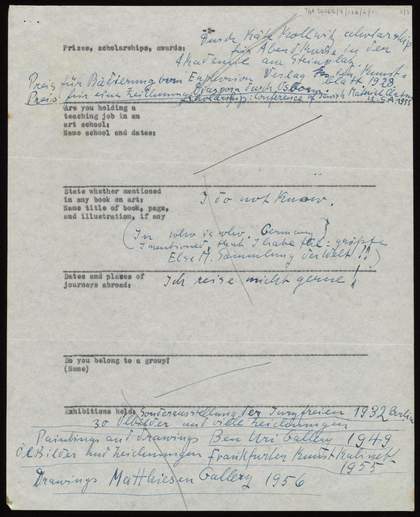 -2-
Durch Käte Kollwitz scholarship
Prizes, scholarships, awards:
für Abendkurse in der
Akademie am Steinplatz.
Preis für Radierung vom Verlag Kunst-
blatt 1928
Preis für eine Zeichnung Diaspora durch
scholarship: Conference of Jewish Material Claims
U.S.A. 1955
Are you holding a
teaching job in an
art school:
Name school and dates:
State whether mentioned
in any book on art:
Name title of book, page,
and illustration, if any
I do not know.
(In who is who: Germany)
I mentioned, that I habe die größte
Else M. Sammlung der Welt!!)
Dates and places of
journeys abroad:
Ich reise nicht gerne!
Do you belong to a group?
(Name)
Exhibitions held: Sonderausstellung der Juryfreien 1932 Berlin
30 Ölbilder und viele Zeichnungen
Paintings and drawings Ben Uri Gallery 1949
Ölbilder und Zeichnungen Frankfurter Kunstkabinett
1955
Drawings Matthiesen Gallery 1956